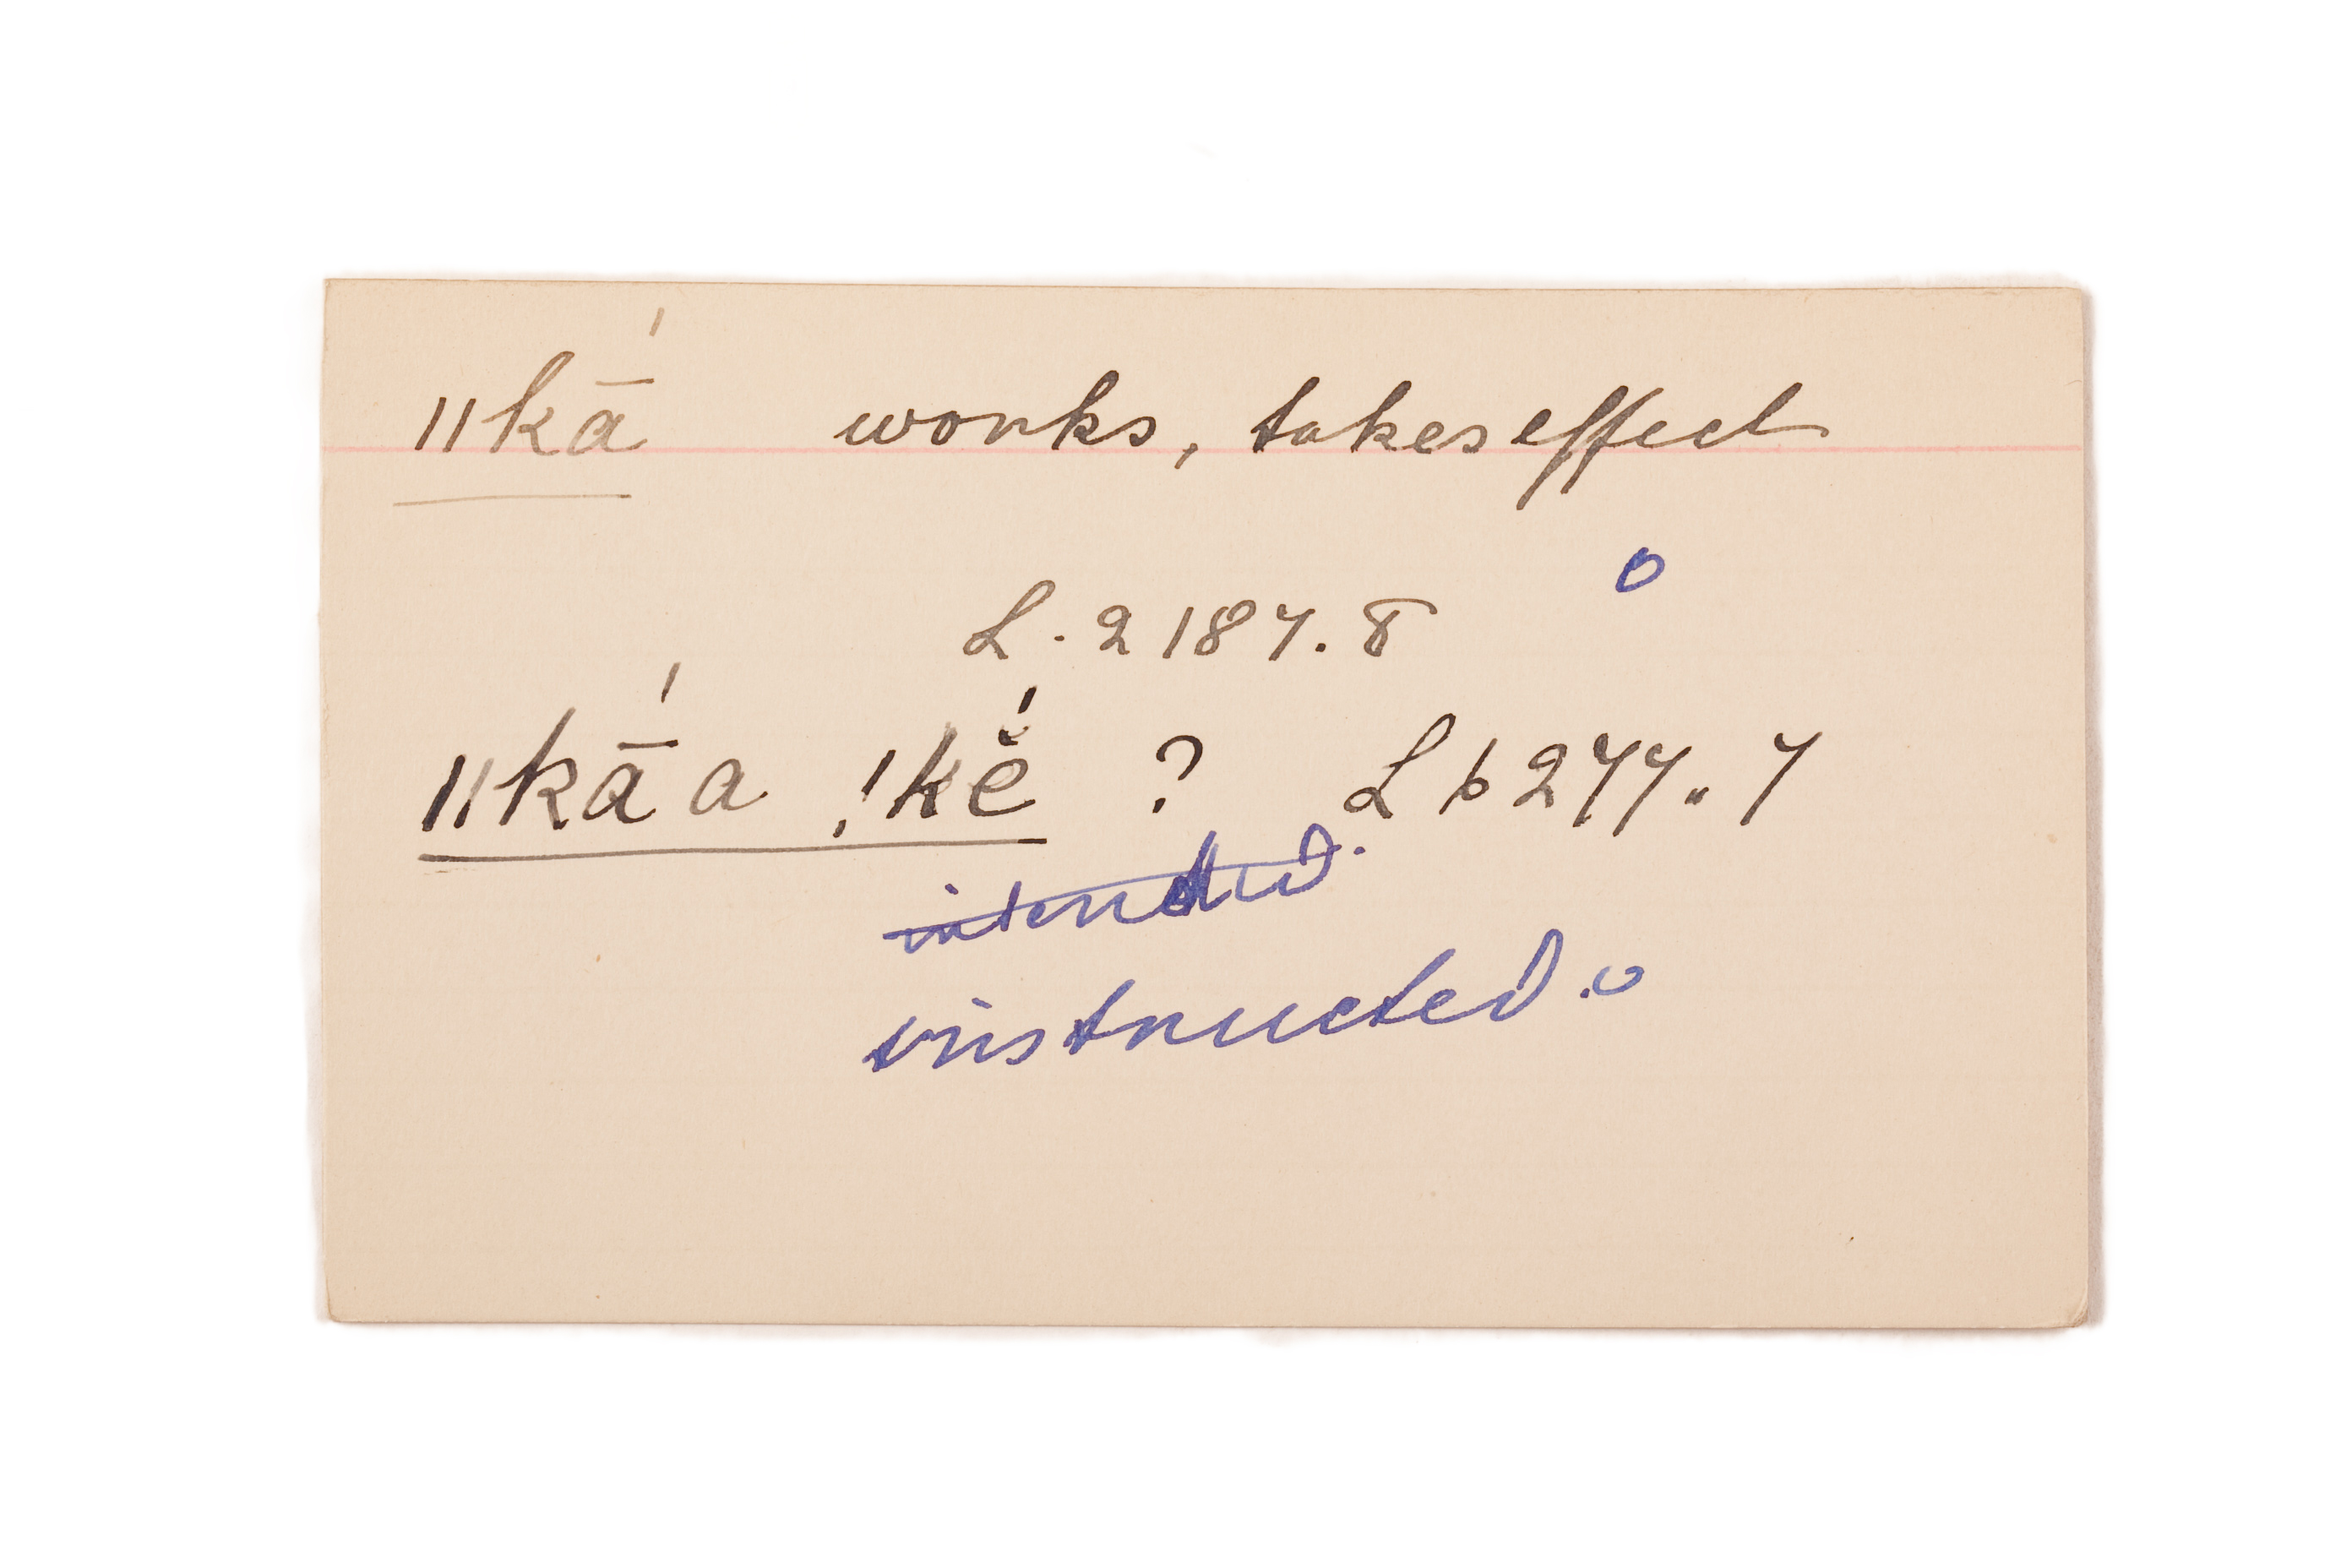 ǁkā́ works, takes effect
o
L. 2187. 8
ǁkā́ a ,!kĕ́ ? L 6277. 7
intended.
instructed. o